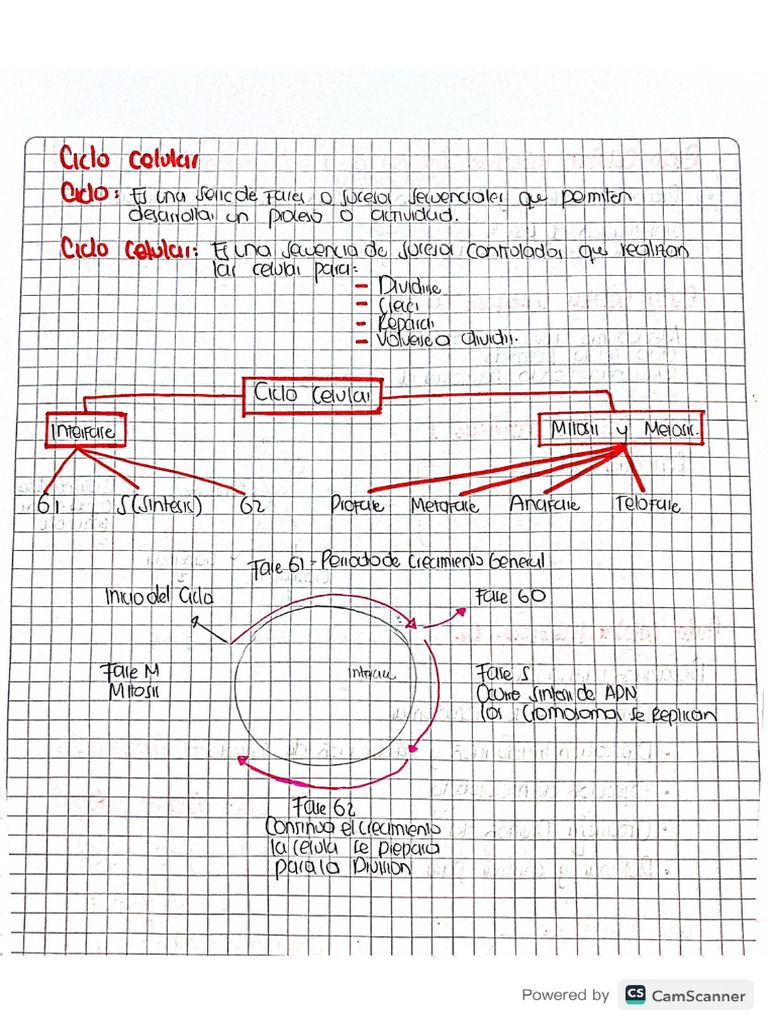 Ciclo celular
Ciclo: Es una serie de Fases o sucesos secuenciales que permiten
desarrollar un proceso o actividad.
Ciclo Celular: Es una secuencia de sucesos controlados que realizan
las celulas para:
- Dividirse
- Crecer
- Reparar
- Volverse a dividir.
Ciclo Celular
Interfase
Mitosis y Meiosis.
G1 S(Sintesis) G2 Profase Metafase Anafase Telofase
Fase G1 - Periodo de Crecimiento General
Inicio del Ciclo
Fase G0
Fase M
Mitosis
Interfase
Fase S
Ocurre sintesis de ADN
los Cromosomas se Replican
Fase G2
Continua el crecimiento
la celula se prepara
para la Division
Powered by CS CamScanner